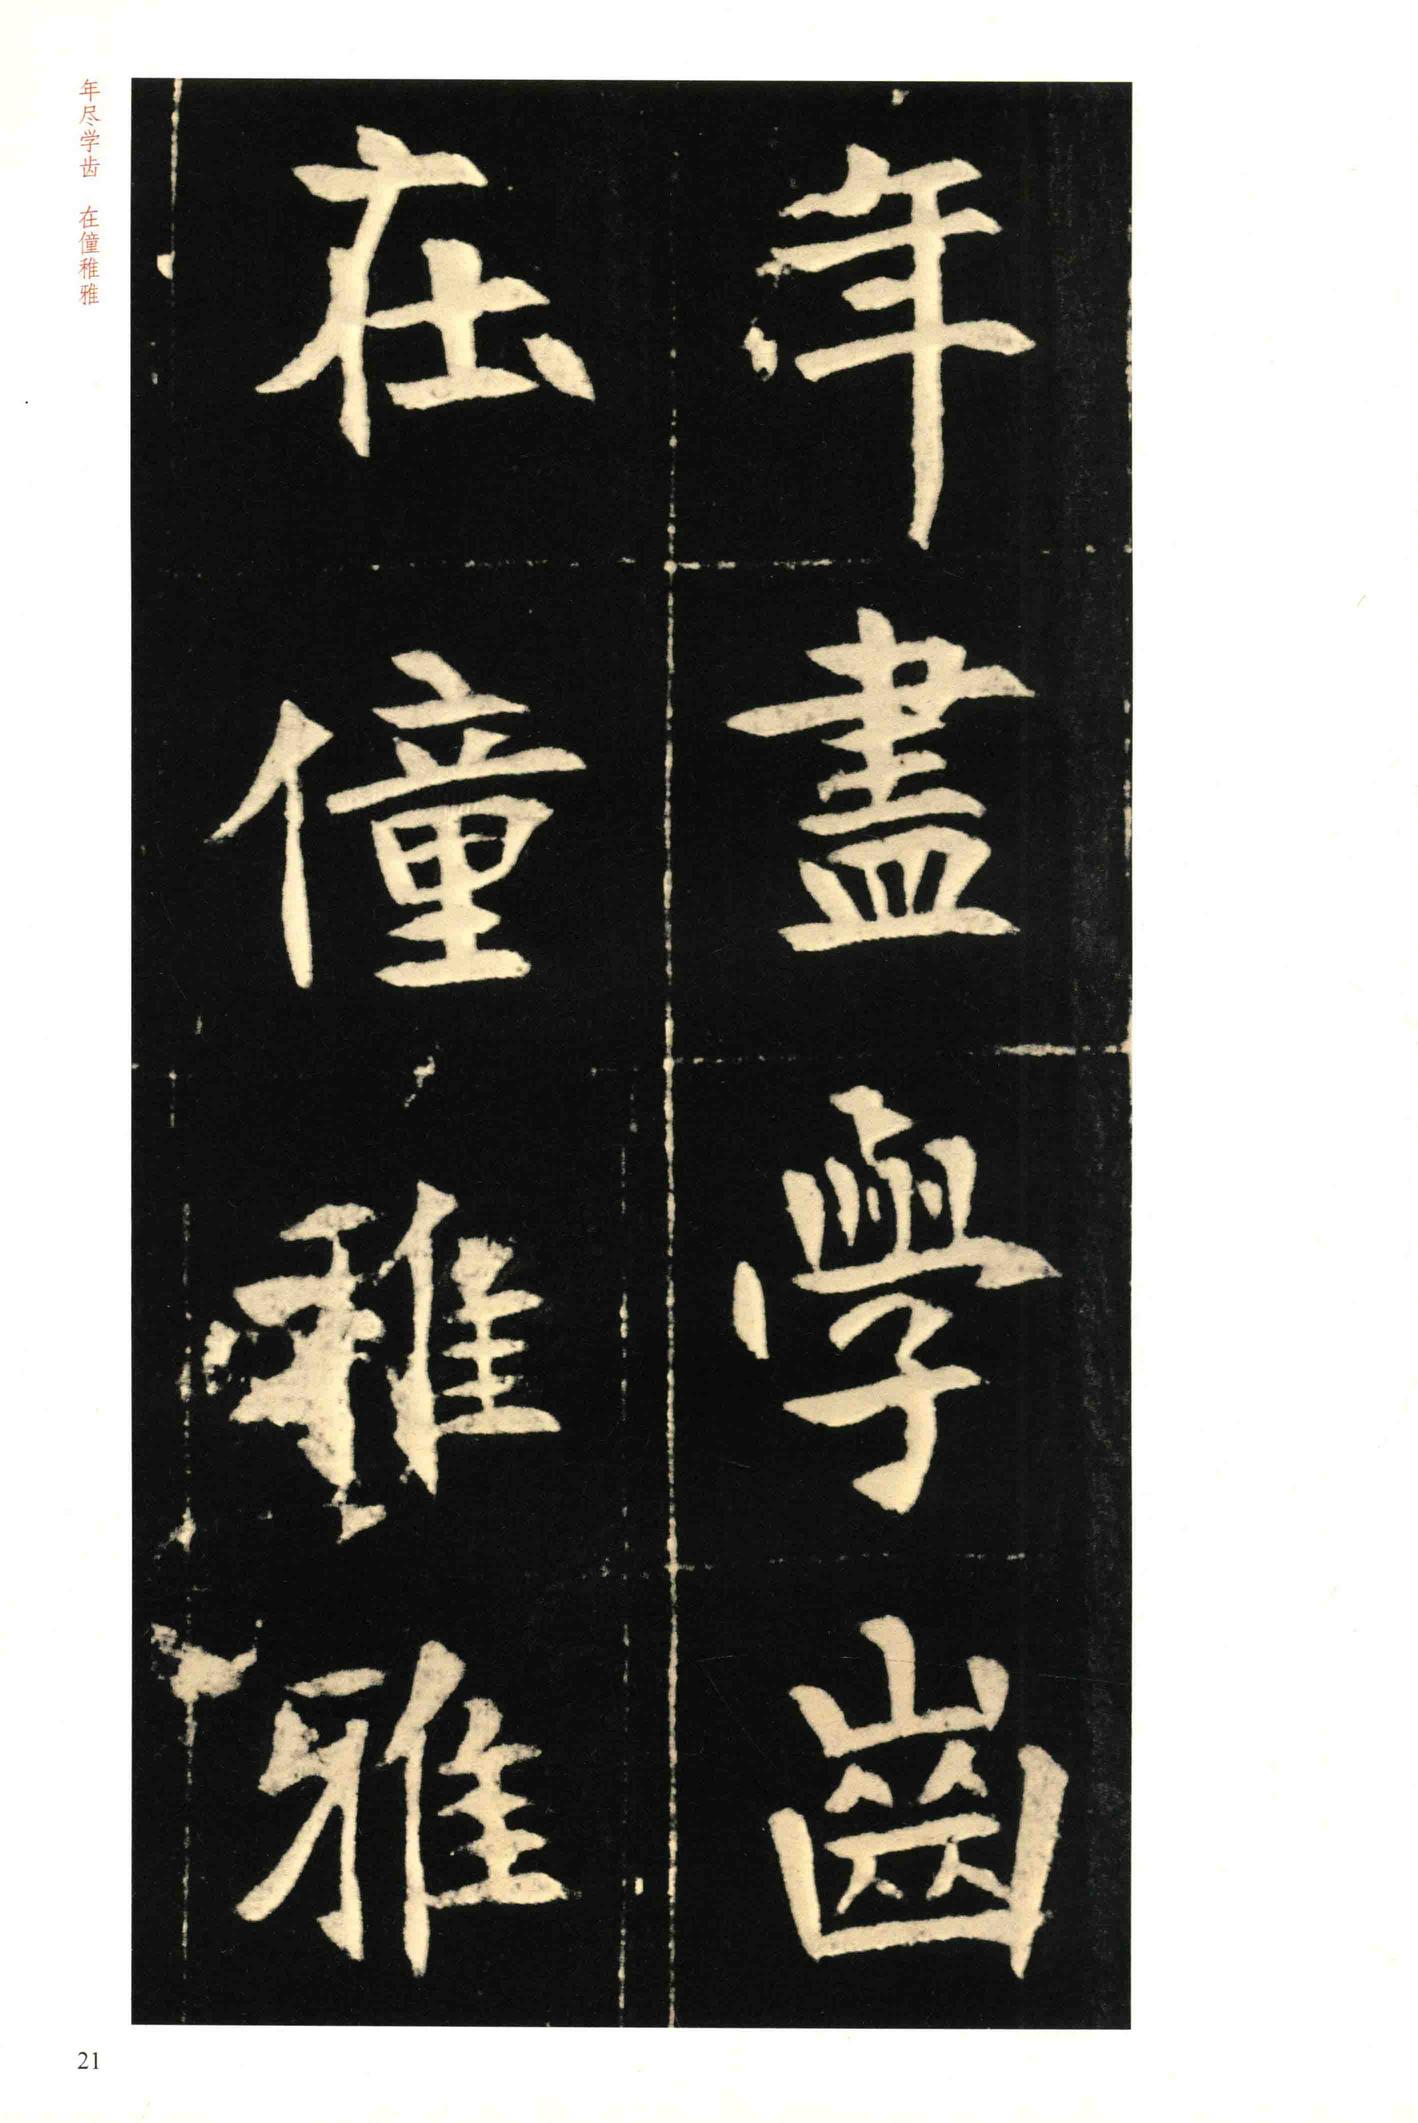 年盡學齒
在僮稚雅
年尽学齿 在僮稚雅
21